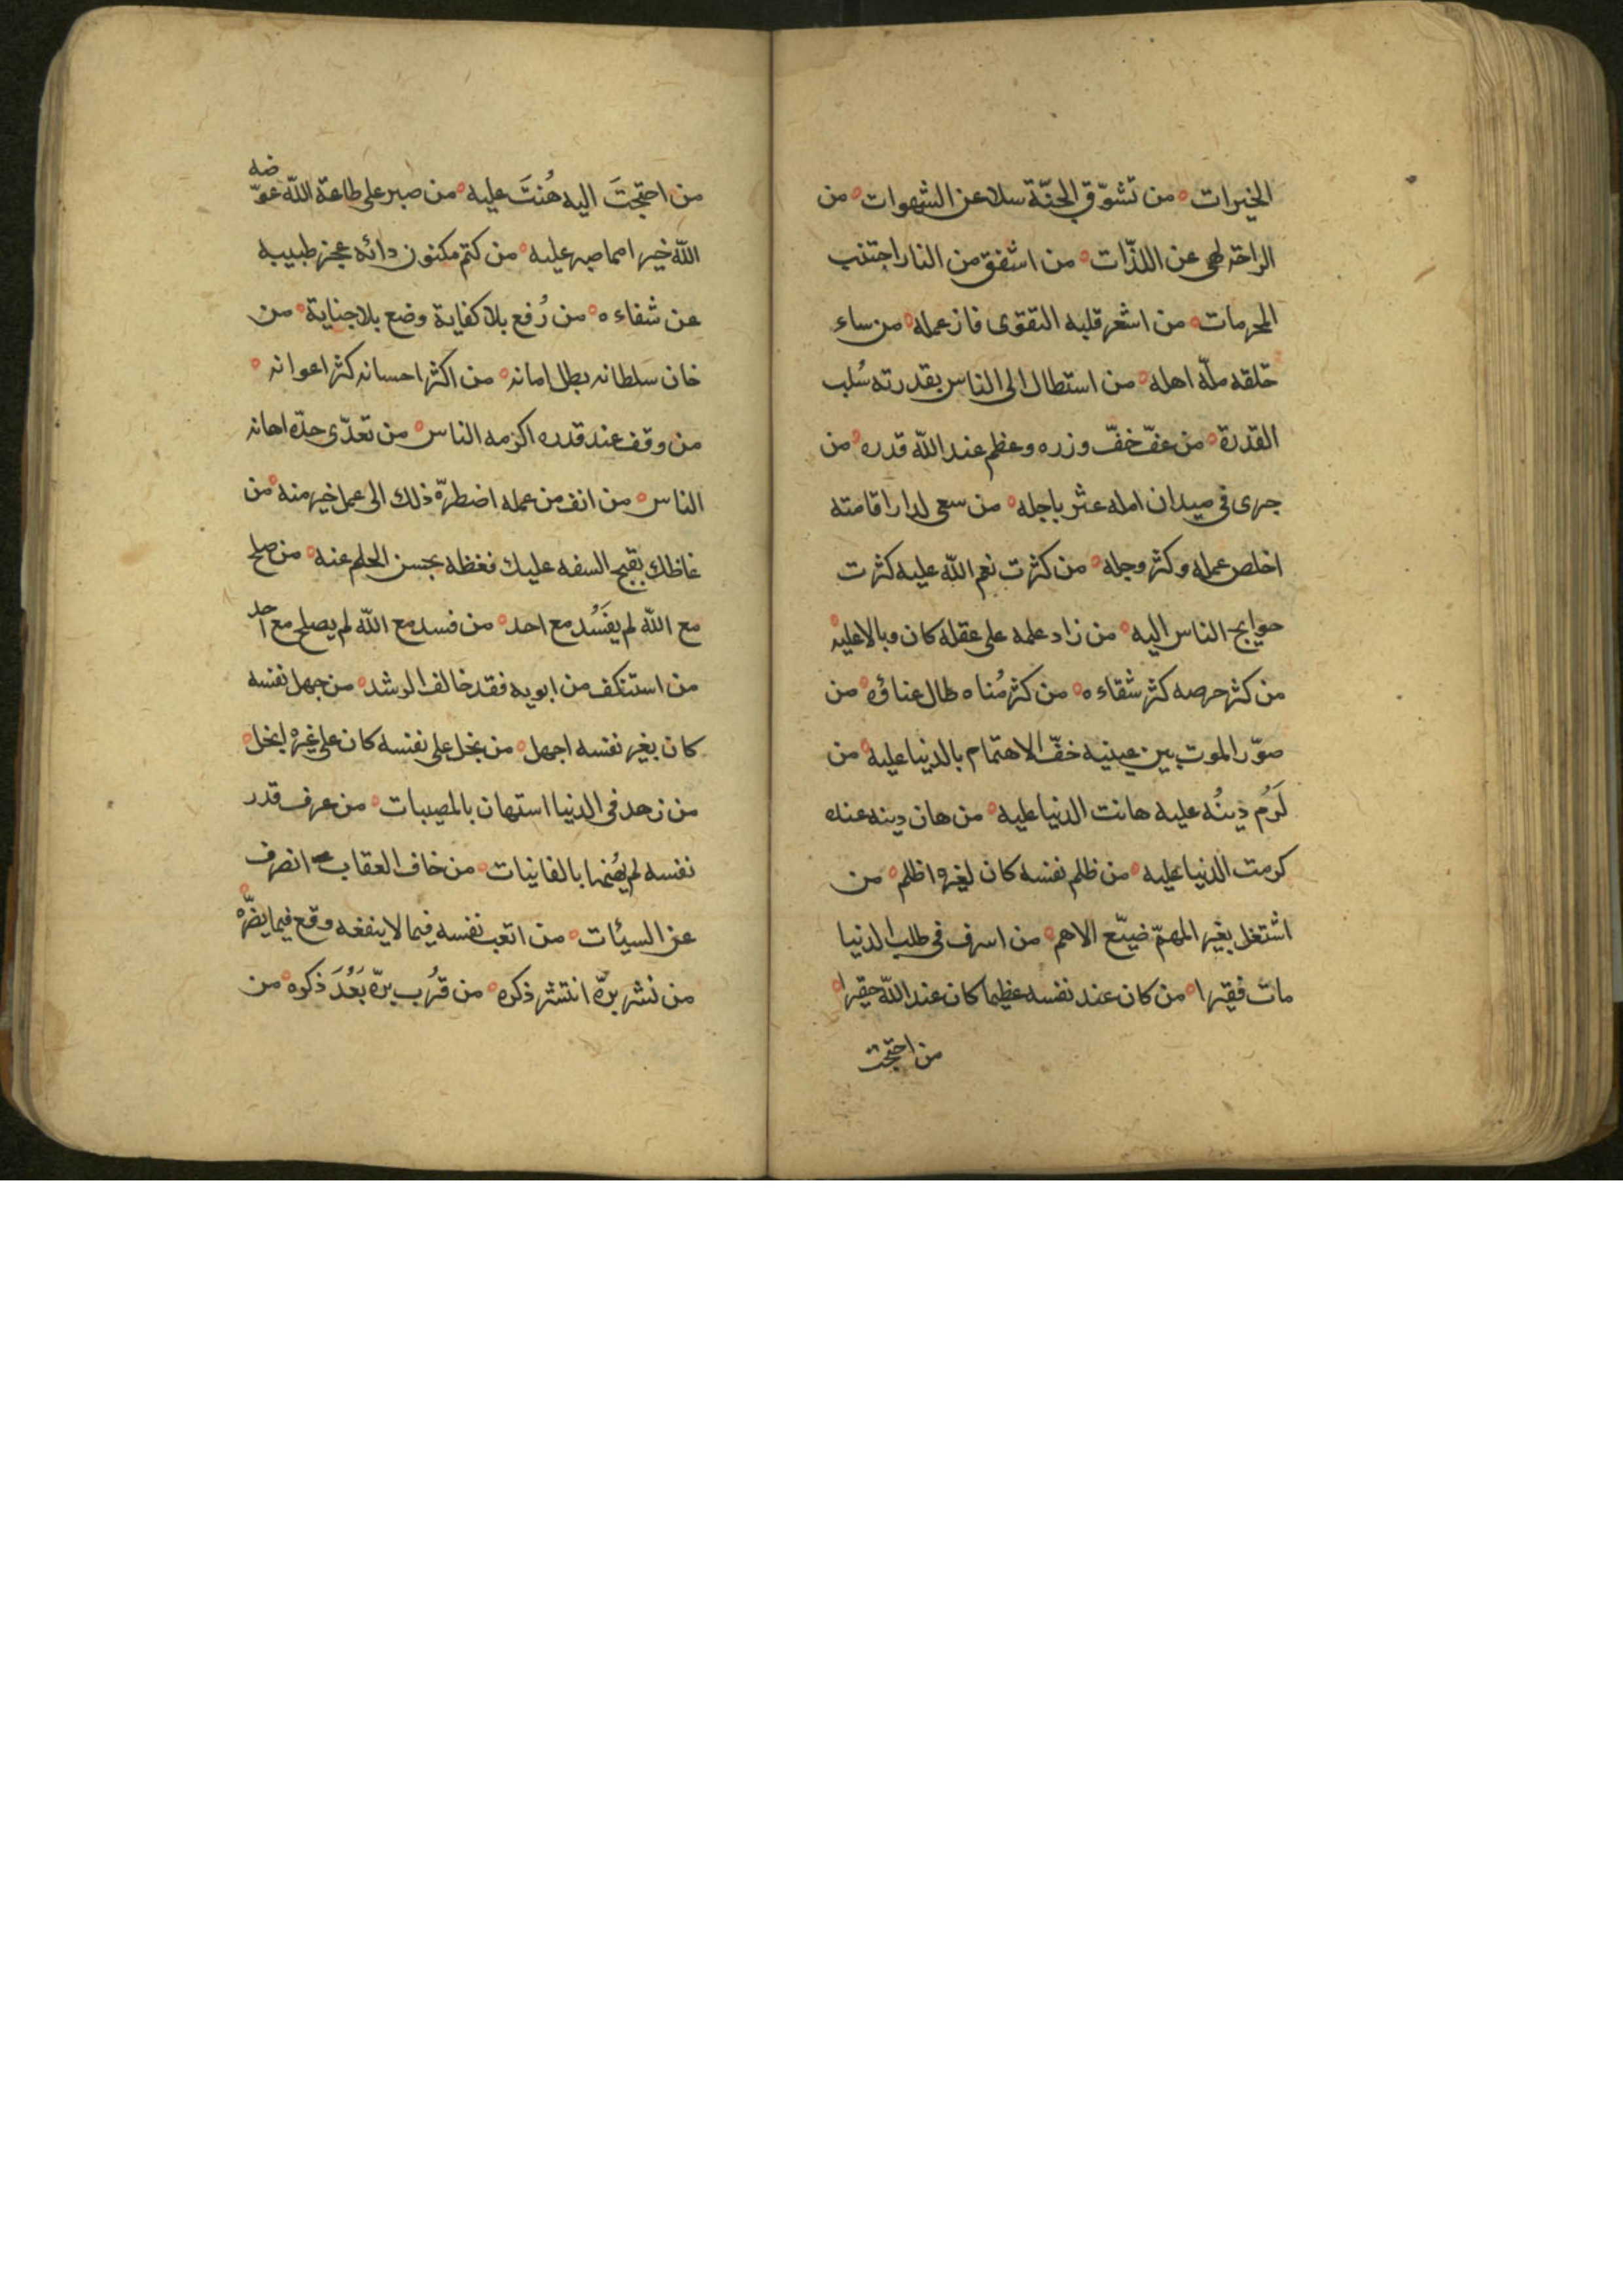 الخيرات ه من تشوّق الجنّة سلا عن الشهوات ه من
الراحة لهى عن اللذّات ه من اشفق من النار اجتنب
المحرمات ه من اشعر قلبه التقوى فاز عمله ه من ساء
خلقه ملّه اهله ه من استطال الى الناس بقدرته سُلب
القدرة ه من عفّ خفّ وزره وعظم عند اللّه قدره ه من
جرى في ميدان امله عثر باجله ه من سعى لدار اقامته
اخلص عمله وكثر وجله ه من كثرت نعم اللّه عليه كثرت
حوايج الناس اليه ه من زاد علمه على عقله كان وبالا عليه ه
من كثر حرصه كثر شقاءه ه من كثر مُناه طال عناؤه ه من
صوّر الموت بين عينيه خفّ الاهتمام بالدنيا عليه ه من
كَرُم دِينُه عليه هانت الدنيا عليه ه من هان دينه عنده
كرمت الدنيا عليه ه من ظلم نفسه كان لغيره اظلم ه من
اشتغل بغير المهمّ ضيّع الاهم ه من اسرف في طلب الدنيا
مات فقيرا ه من كان عند نفسه عظيما كان عند اللّه حقيرا ه
من احتجت
من احتجتَ اليه هُنتَ عليه ه من صبر على طاعة اللّه عوّضه
اللّه خيرا مما صبر عليه ه من كتم مكنون دائه عجز طبيبه
عن شفاءه ه من رُفع بلا كفاية وضع بلا جناية ه من
خان سلطانه بطل امانه ه من اكثر احسانه كثر اعوانه ه
من وقف عند قدره اكرمه الناس ه من تعدّى حدّه اهانه
الناس ه من انف من عمله اضطرّه ذلك الى عمل خير منه ه من
غاظك بقبح السفه عليك فغظه بحسن الحلم عنه ه من صلح
مع اللّه لم يفسُد مع احد ه من فسد مع اللّه لم يصلح مع احد
من استنكف من ابويه فقد خالف الرشد ه من جهل نفسه
كان بغير نفسه اجهل ه من بخل على نفسه كان على غيره ابخل ه
من زهد في الدنيا استهان بالمصيبات ه من عرف قدر
نفسه لم يُهنها بالفانيات ه من خاف العقاب انصرف
عن السيئات ه من اتعب نفسه فيما لا ينفعه وقع فيما يضرّه ه
من نشر برّه انتشر ذكره ه من قرُب برّه بَعُدَ ذكره ه من